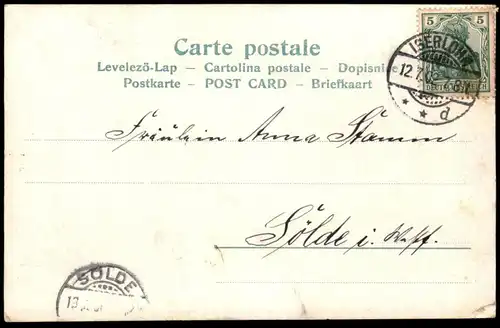 Carte postale
Levelező-Lap — Cartolina postale — Dopisnice
Postkarte — POST CARD — Briefkaart
5 5
ISERLOHN
12.7.
d
Fräulein Anna Stamm
Sölde i. Westf.
SÖLDE